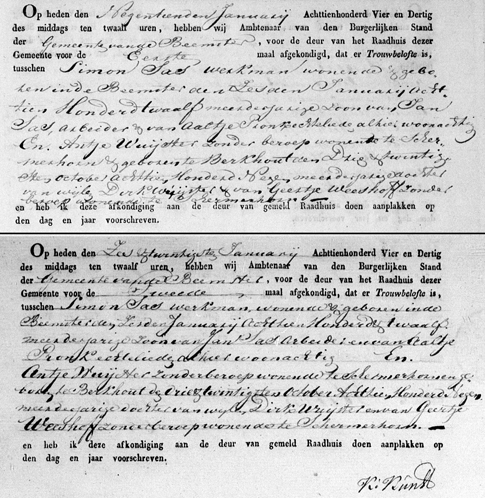 Op heden den Negentienden Januarij Achttienhonderd Vier en Dertig
des middags ten twaalf uren, hebben wij Ambtenaar van den Burgerlijken Stand
der Gemeente van de Beemster, voor de deur van het Raadhuis dezer
Gemeente voor de Eerste maal afgekondigd, dat er Trouwbelofte is,
tusschen Simon Sas werkman wonende & gebo-
ren in de Beemster den Zesden Januarij Acht-
tien Honderd twaalf meerderjarige Zoon van Jan
Sas, Arbeider & van Aaltje Pronk Echtelieden alhier woonachtig
En. Antje Wuijster Zonder beroep wonende te Scher-
merhorn & geboren te Berkhout den Drie & twintig
sten October Achttien Honderd Negen meerderjarige dochter
van wijlen Dirk Wuijster & van Geertje Weeshoff zonder
beroep wonende te Schermerhorn
en heb ik deze afkondiging aan de deur van gemeld Raadhuis doen aanplakken op
den dag en jaar voorschreven.
Op heden den Zes & twintigste Januarij Achttienhonderd Vier en Dertig
des middags ten twaalf uren, hebben wij Ambtenaar van den Burgerlijken Stand
der Gemeente van de Beemster, voor de deur van het Raadhuis dezer
Gemeente voor de Tweede maal afgekondigd, dat er Trouwbelofte is,
tusschen Simon Sas werkman, wonende & geboren in de
Beemster den Zesden Januarij Achttien Honderd twaalf
meerderjarige Zoon van Jan Sas Arbeider en van Aaltje
Pronk Echtelieden alhier woonachtig En.
Antje Wuijster Zonder beroep wonende te Schermerhorn ge-
boren te Berkhout de drie & twintigsten October Achttien Honderd Negen
meerderjarige dochter van wijlen Dirk Wuijster en van Geertje
Weeshoff zonder beroep wonende te Schermerhorn.
en heb ik deze afkondiging aan de deur van gemeld Raadhuis doen aanplakken op
den dag en jaar voorschreven.